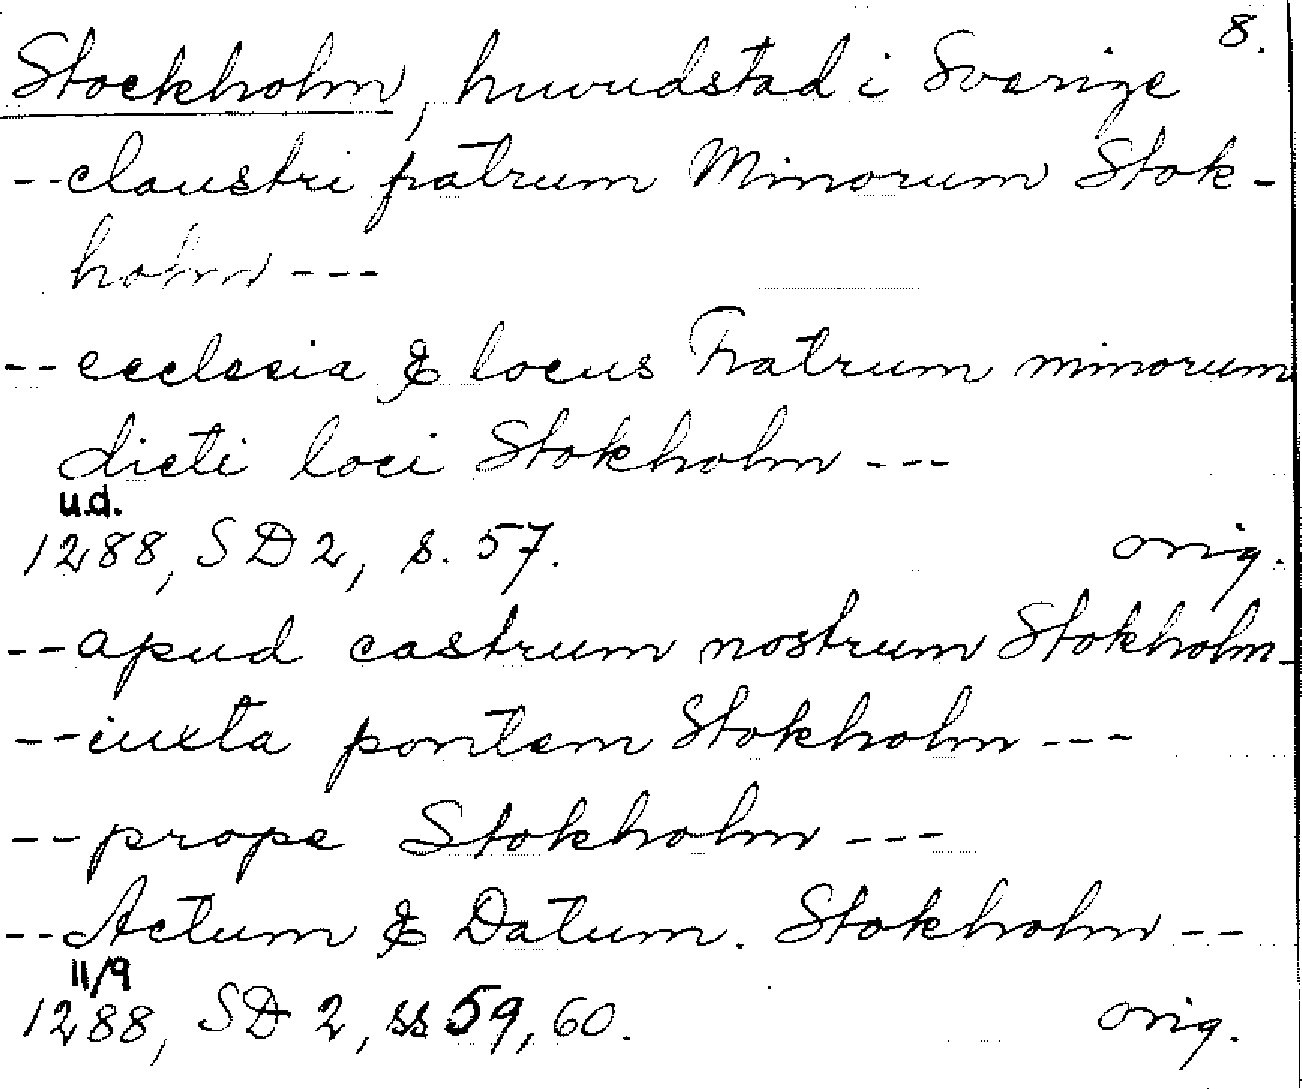 8.
Stockholm, huvudstad i Sverige
--claustri fratrum Minorum Stok-
holm---
--ecclesia & locus Fratrum minorum
dicti loci Stokholm---
u.d.
1288, SD 2, s. 57. orig.
--apud castrum nostrum Stokholm-
--iuxta pontem Stokholm---
--prope Stokholm---
--Actum & Datum. Stokholm--
11/9
1288, SD 2, ss 59, 60. orig.